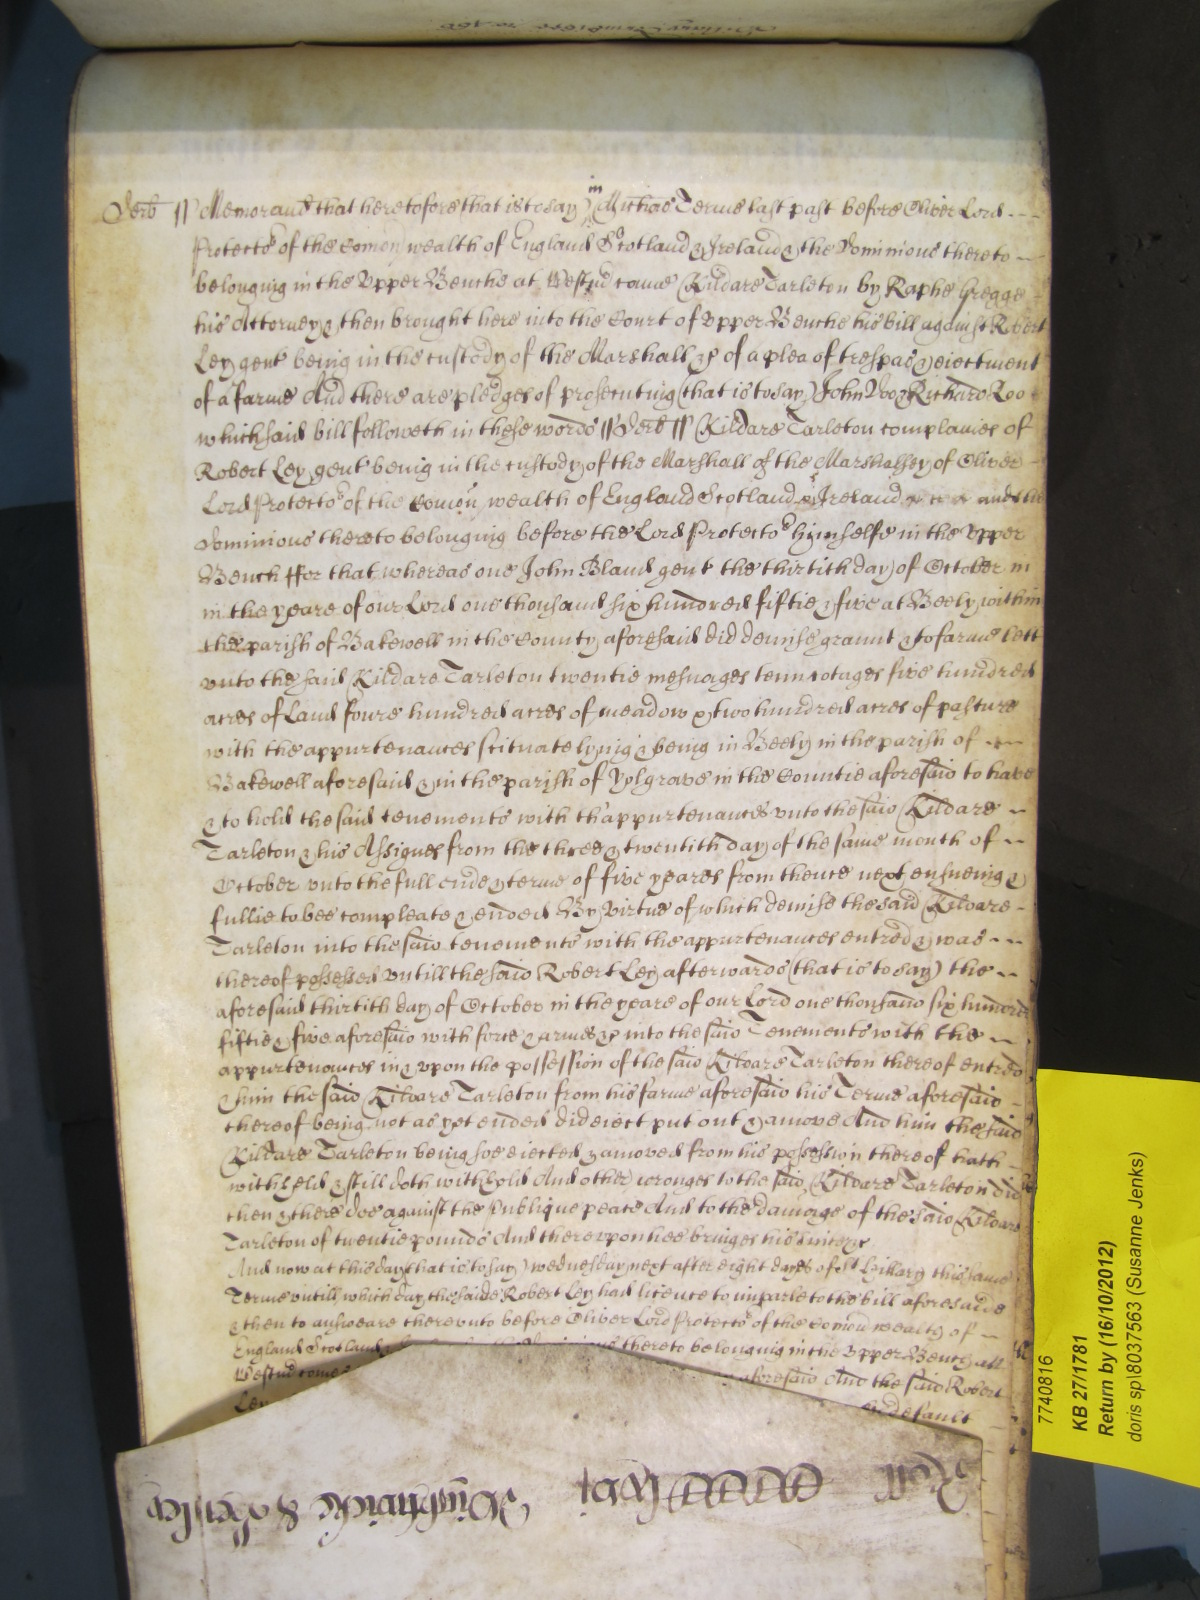 Derb ss Memorand that heretofore that is to say in Michas Terme last past before Oliver Lord
Protector of the Comon wealth of England Scotland & Ireland & the Dominions thereto
belonging in the Upper Benche at Westm came Kildare Tarleton by Raphe Gregge
his Attorney & then brought here into the Court of Upper Benche his bill against Robert
Ley gent being in the custody of the Marshall &c of a plea of trespas & eiectment
of a farme And there are pledges of prosecuting (that is to say) John Doo & Richard Roo
which said bill followeth in these words ss Derb ss Kildare Tarleton complaines of
Robert Ley gent being in the custody of the Marshall of the Marshalsey of Oliver
Lord Protector of the Comon wealth of England Scotland & Ireland and the
Dominions thereto belonging before the Lord Protector himselfe in the Upper
Bench ffor that whereas one John Bland gent the thirtith day of October in
in the yeare of our Lord one thousand six hundred fiftie & five at Beely within
the parish of Bakewell in the County aforesaid did demise graunt & to farme lett
unto the said Kildare Tarleton twentie mesuages tenn cotages five hundred
acres of Land foure hundred acres of meadow & two hundred acres of pasture
with the appurtenances scituate lying & being in Beely in the parish of
Bakewell aforesaid & in the parish of Yolgrave in the Countie aforesaid to have
& to hold the said tenements with thappurtenances unto the said Kildare
Tarleton & his Assignes from the three & twentith day of the same month of
October unto the full ende & terme of five yeares from thence next ensueing &
fullie to bee compleate & ended By virtue of which demise the said Kildare
Tarleton into the said tenements with the appurtenances entred & was
thereof possessed untill the said Robert Ley afterwards (that is to say) the
aforesaid thirtith day of October in the yeare of our Lord one thousand six hundred
fiftie & five aforesaid with force & armes &c into the said Tenements with the
appurtenances in & upon the possession of the said Kildare Tarleton thereof entred
& him the said Kildare Tarleton from his farme aforesaid his Terme aforesaid
thereof being not as yet ended did eiect put out & amove And him the said
Kildare Tarleton being soe eiected & amoved from his possession thereof hath
withheld & still doth withhold And other wronges to the said Kildare Tarleton did
then & there doe against the Publique peace And to the damage of the said Kildare
Tarleton of twentie pounds And thereupon hee bringes his suite &c
And now at this day (that is to say) wednesday next after eight dayes of St Hillary this same
Terme untill which day the saide Robert Ley had licence to imparle to the bill aforesaide
& then to answeare thereunto before Oliver Lord Protector of the Comon wealth of
England Scotland thereto belonging in the Upper Bench att
Westm come aforesaid And the said Robert
Ley default
Roll
7740816
KB 27/1781
Return by (16/10/2012)
doris sp\8037563 (Susanne Jenks)